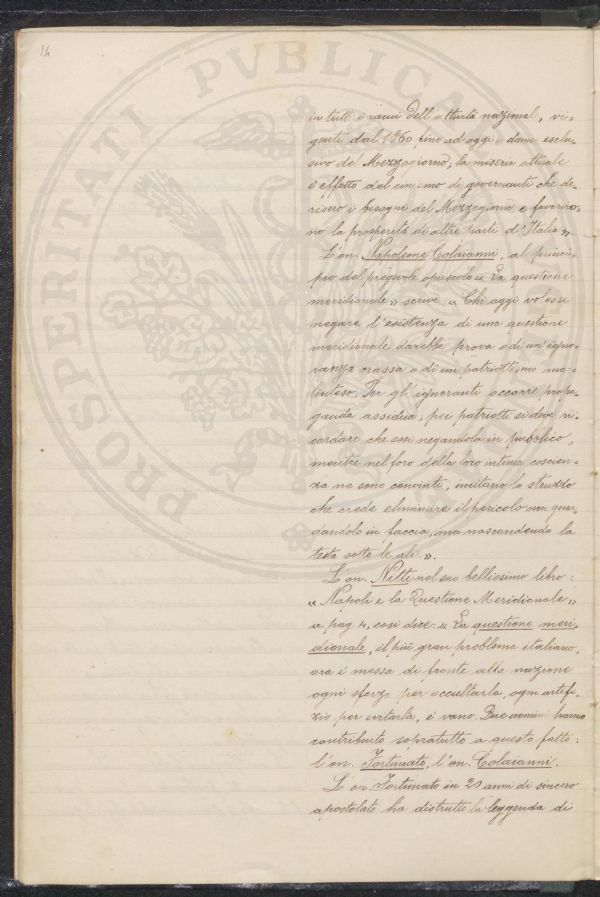 14
PROSPERITATI PVBLICAE
in tutti i rami dell'attività nazional, vi-
gente dal 1860 fino ad oggi a danno esclu-
sivo del Mezzogiorno; la miseria attuale
è effetto del cinismo di governanti che de-
risero i bisogni del Mezzogiorno e favoriro-
no la prosperità di altre parti d'Italia».
L'on. Napoleone Colaianni, al princi-
pio del pregevole opuscolo «La questione
meridionale» scrive: «Chi oggi volesse
negare l'esistenza di una questione
meridionale darebbe prova o di un'igno-
ranza crassa o di un patriottismo ma-
linteso. Per gl'ignoranti occorre propa-
ganda assidua; pei patriotti si deve ri-
cordare che essi negandola in pubblico,
mentre nel foro della loro intima coscien-
za ne sono convinti, imitano lo struzzo
che crede eliminare il pericolo non guar-
dandolo in faccia, ma nascondendo la
testa sotto le ali».
L'on. Nitti nel suo bellissimo libro:
«Napoli e la Questione Meridionale»
a pag. 4, così dice: «La questione meri-
dionale, il più gran problema italiano,
ora è messa di fronte alla nazione
ogni sforzo per occultarla, ogni artifi-
zio per evitarla, è vano. Due uomini hanno
contribuito sopratutto a questo fatto:
l'on. Fortunato, l'on. Colaianni.
L'on. Fortunato in 20 anni di sincero
apostolato ha distrutto la leggenda di